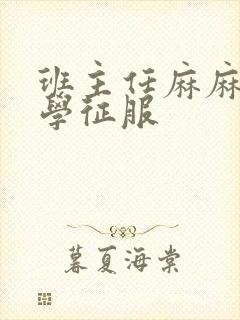 班主任麻麻
學征服
暮夏海棠